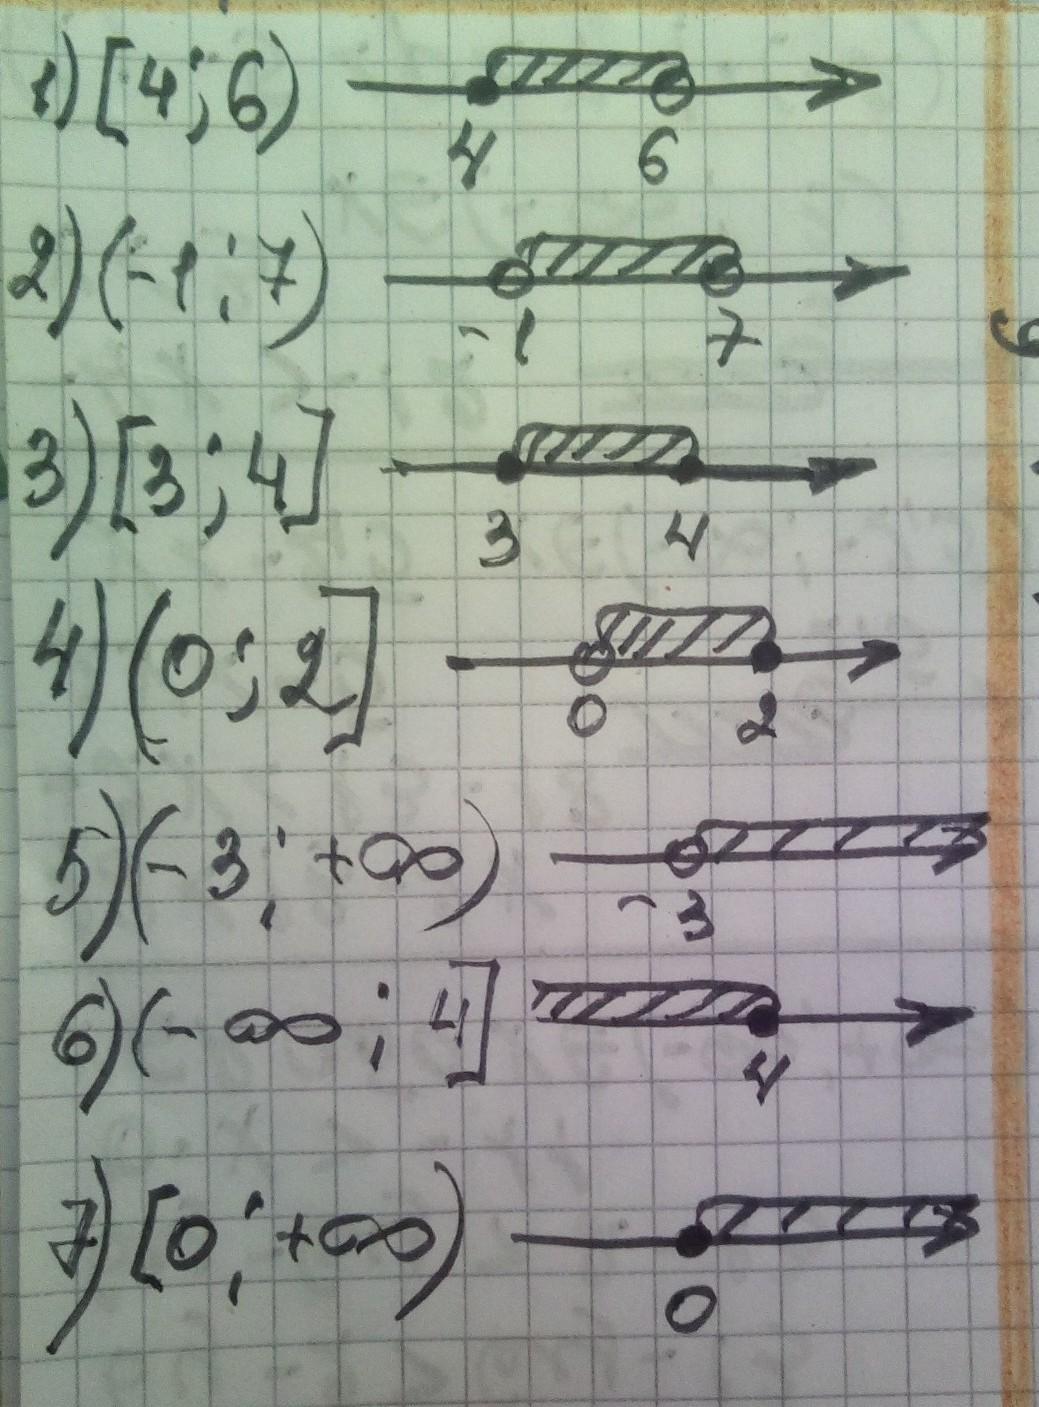 1) [4; 6)
4 6
2) (-1; 7)
-1 7
3) [3; 4]
3 4
4) (0; 2]
0 2
5) (-3; +∞)
-3
6) (-∞; 4]
4
7) [0; +∞)
0